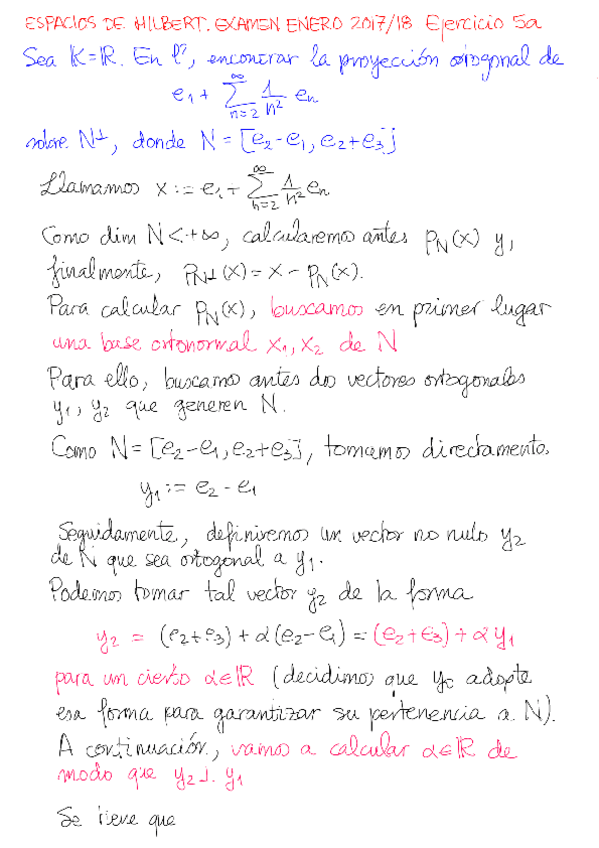 ESPACIOS DE HILBERT. EXAMEN ENERO 2017/18 Ejercicio 5a
Sea K=R. En l², encontrar la proyección ortogonal de
e₁ + ∑_{n=2}^{∞} 1/n² eₙ
sobre N⊥, donde N = [e₂-e₁, e₂+e₃]
Llamamos x := e₁ + ∑_{n=2}^{∞} 1/n² eₙ
Como dim N < +∞, calcularemos antes p_N(x) y,
finalmente, p_N⊥(x) = x - p_N(x).
Para calcular p_N(x), buscamos en primer lugar
una base ortonormal x₁, x₂ de N
Para ello, buscamos antes dos vectores ortogonales
y₁, y₂ que generen N.
Como N = [e₂-e₁, e₂+e₃], tomamos directamente
y₁ := e₂ - e₁
Seguidamente, definiremos un vector no nulo y₂
de N que sea ortogonal a y₁.
Podemos tomar tal vector y₂ de la forma
y₂ = (e₂+e₃) + α(e₂-e₁) = (e₂+e₃) + αy₁
para un cierto α∈R (decidimos que y₂ adopte
esa forma para garantizar su pertenencia a N).
A continuación, vamos a calcular α∈R de
modo que y₂ ⊥ y₁
Se tiene que